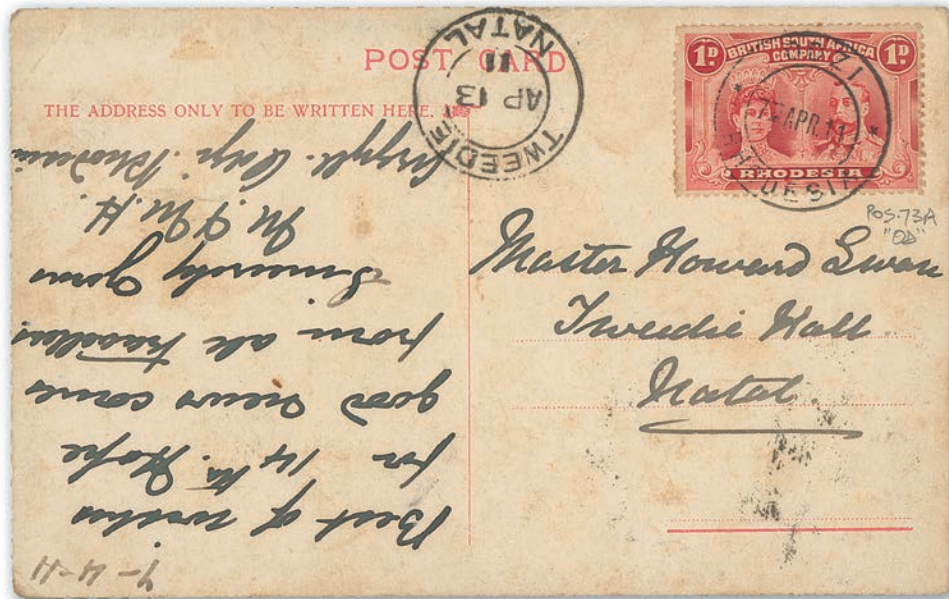 POST CARD
THE ADDRESS ONLY TO BE WRITTEN HERE.
TWEEDIE
NATAL
AP 13
11
1D BRITISH SOUTH AFRICA 1D
COMPANY
RHODESIA
7 APR. 19
POS. 73A
Master Howard Swan
Tweedie Hall
Natal.
7-4-11
Best of wishes
for 14th. Hope
good news comes
from all travellers.
Sincerely yours
M. H.
Argyll. Rhodesia